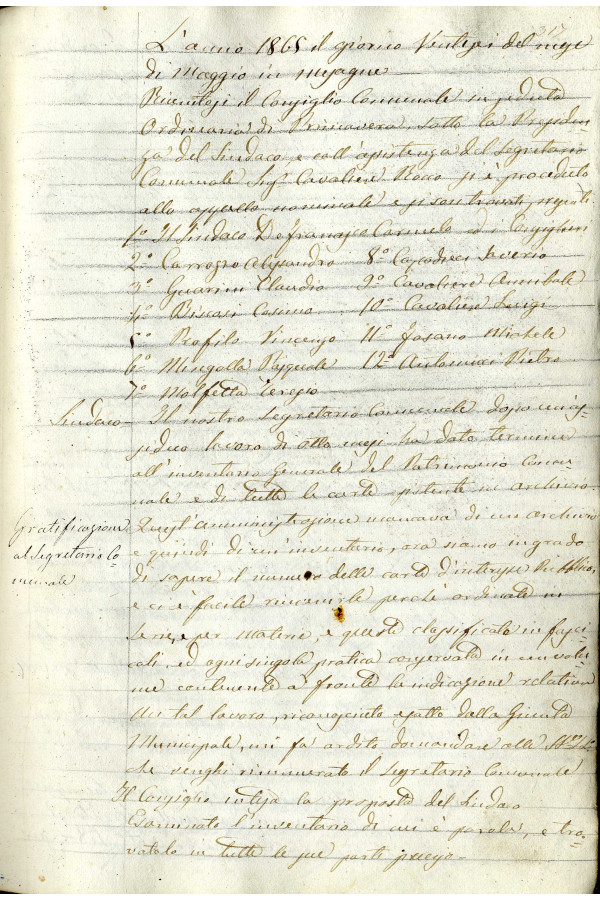 L'anno 1865 il giorno Ventisei del mese
di Maggio in Mesagne
Riunitosi il Consiglio Comunale in seduta
Ordinaria di Primavera sotto la Presiden-
za del Sindaco, e coll'assistenza del Segretario
Comunale Sig. Cavaliere Rocco si è proceduto
allo appello nominale e si son trovati presenti
1° Il Sindaco Defrancesco Carmelo ed i Consiglieri
2° Carrozzo Alessandro 8° Capodieci Saverio
3° Guarini Claudio 9° Cavaliere Annibale
4° Biscosi Cosimo 10° Cavaliere Luigi
5° Profilo Vincenzo 11° Fasano Michele
6° Mingolla Pasquale 12° Antonucci Pietro
7° Molfetta Teresio
Sindaco – Il nostro Segretario Comunale dopo un as-
siduo lavoro di otto mesi ha dato termine
all'inventario Generale del Patrimonio Comu-
nale e di tutte le carte esistente in archivio.
Gratificazione
al Segretario Co-
munale
Quest'amministrazione mancava di un archivio
e quindi di un'inventario, ora siamo in grado
di sapere il numero delle carte d'interesse Pubblico,
e ci è facile rinvenirle perche ordinate in
serie, e per materie, e queste classificate in fasci-
coli, ed ogni singola pratica conservata in un volu-
me contenente a fronte la indicazione relativa
Un tal lavoro, riconosciuto esatto dalla Giunta
Municipale, mi fa ardito domandare alle
che venghi rimunerato il Segretario Comunale
Il Consiglio intesa la proposta del Sindaco
Esaminato l'inventario di cui è parola, e tro-
vatolo in tutte le sue parti preciso –